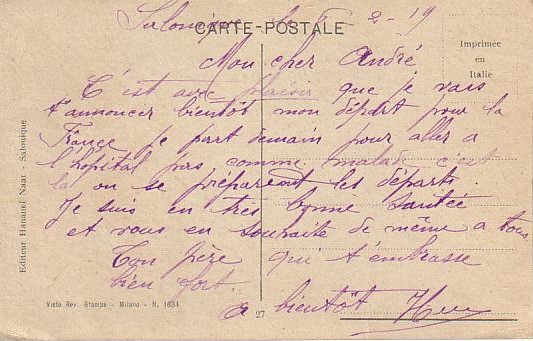 Salonique le 2-19
CARTE-POSTALE
Imprimée
en
Italie
Mon cher André
C'est avec plaisir que je vais
t'annoncer bientôt mon départ pour la
France je part demain pour aller a
l'hopital pas comme malade c'est
la ou se préparent les départs.
Je suis en tres bonne santée
et vous en souhaite de même a tous
Ton père qui t'embrasse
bien fort..
a bientôt
Editeur Hananel Naar - Salonique
Visto Rev. Stampa - Milano - N. 1634
27